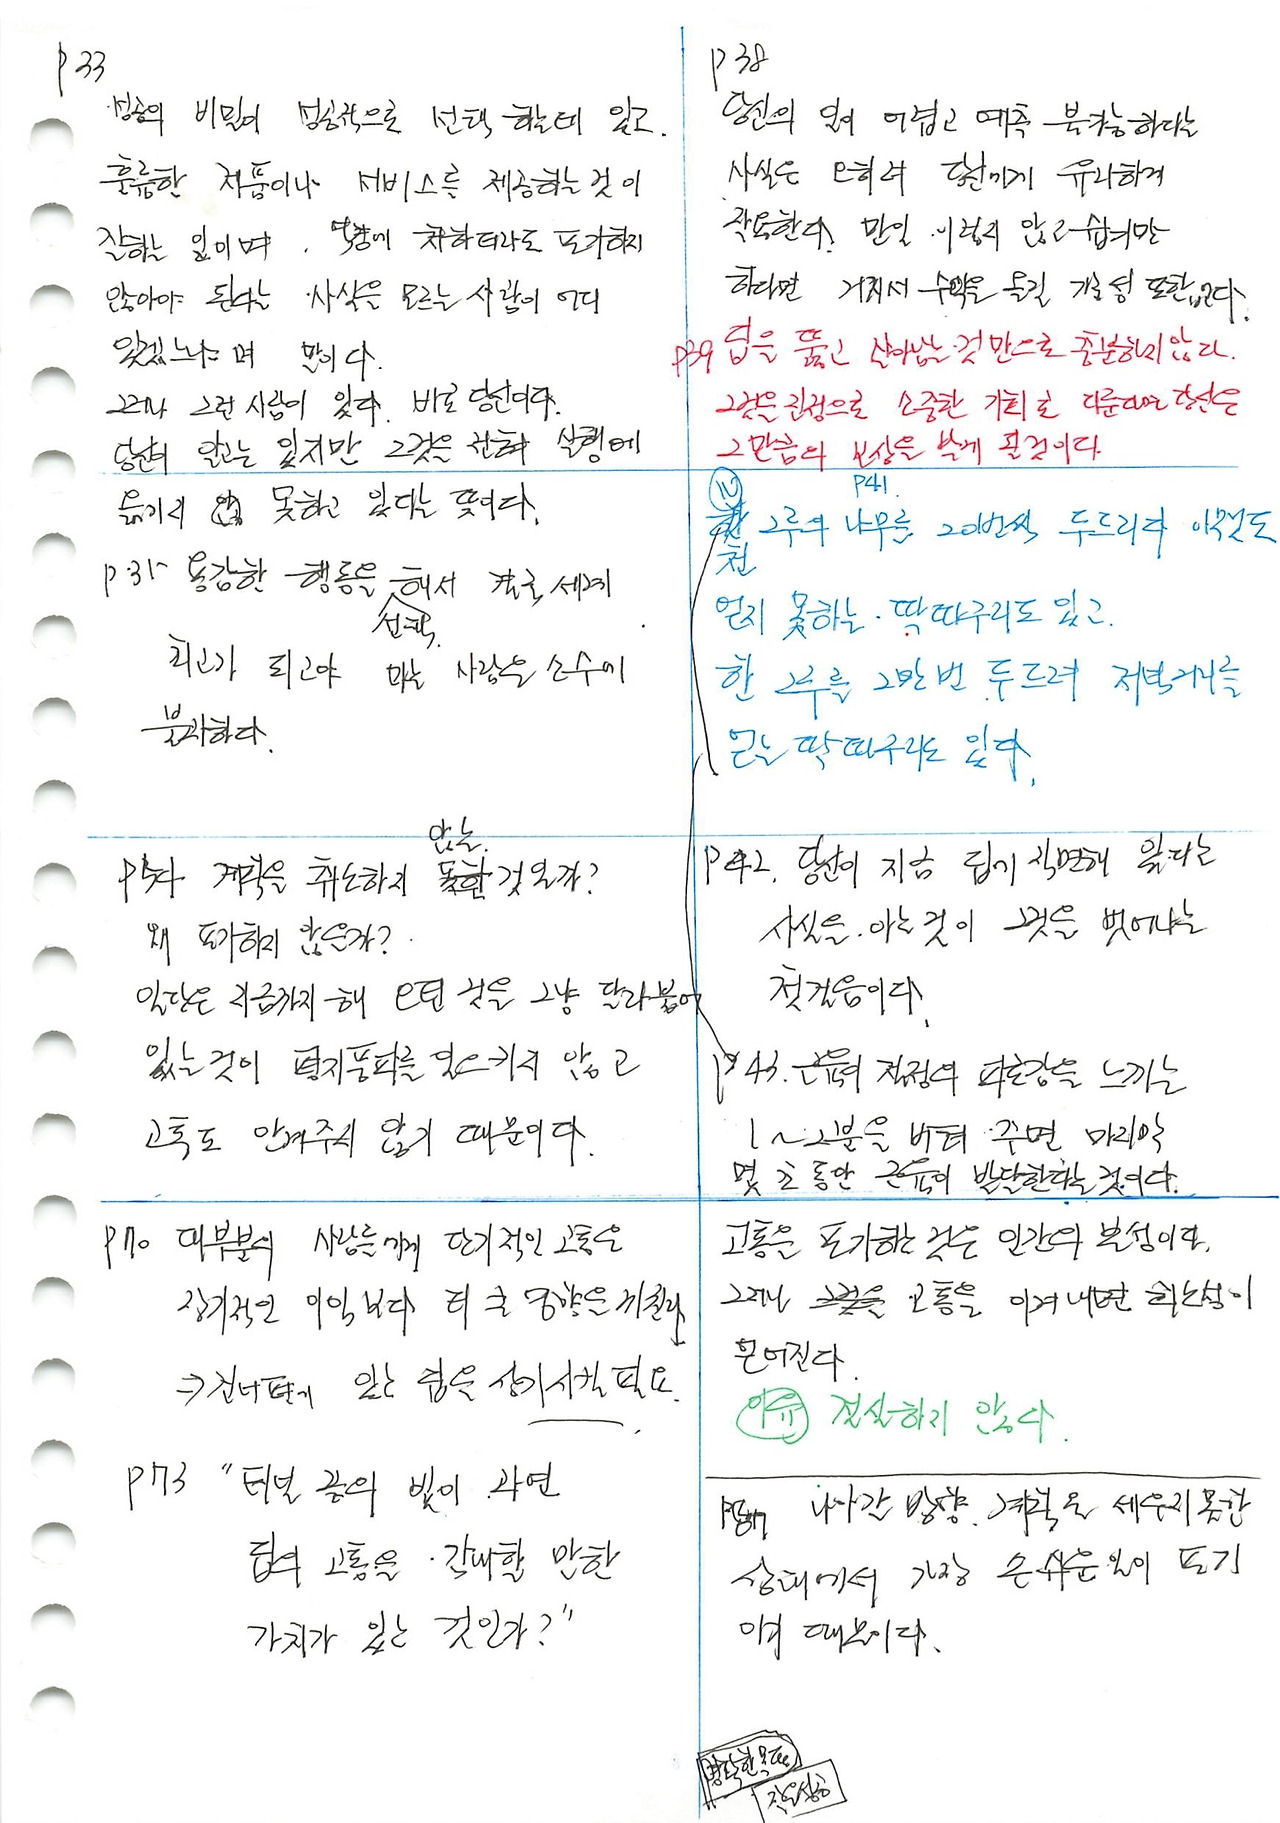 p33
성공의 비밀이 성공적으로 선택 하는데 있고.
훌륭한 제품이나 서비스를 제공하는 것이
잘하는 일이며. 역경에 처하더라도 포기하지
않아야 된다는 사실을 모르는 사람이 어디
있겠느냐며 말이다.
그러나 그런 사람이 있다. 바로 당신이다.
당신이 알고는 있지만 그것을 전혀 실행에
옮기지 못하고 있다는 뜻이다.
p35 용감한 행동을 해서 결국 세계
선택
최고가 되고야 마는 사람은 소수에
불과하다.
않는
계획을 취소하지 못한 것일까?
왜 포기하지 않을까?
일단은 지금까지 해 오던 것을 그냥 달라붙어
있는 것이 평지풍파를 일으키지 않고
고통도 안겨주지 않기 때문이다.
p70 대부분의 사람들에게 단기적인 고통은
장기적인 이익보다 더 큰 영향을 끼친다
→ 건너편에 있는 힘을 상기시킬 필요.
p73 "터널 끝의 빛이 과연
딥의 고통을 감내할 만한
가치가 있는 것인가?"
p38
당신의 일이 어렵고 예측 불가능하다는
사실은 오히려 당신에게 유리하게
작용한다. 만일 이렇지 않고 쉽기만
하다면 거기서 수익을 올릴 가능성 또한 없다.
p39 딥을 뚫고 살아남는 것 만으로 충분하지 않다.
그것을 진정으로 소중한 기회로 다룬다면 당신은
그만큼의 보상을 받게 될 것이다
② p41.
천 그루의 나무를 20번씩 두드리다 아무것도
얻지 못하는 딱따구리도 있고.
한 그루를 2만 번 두드려 저녁거리를
얻는 딱따구리도 있다.
p42. 당신이 지금 딥에 직면해 있다는
사실을 아는 것이 그것을 벗어나는
첫걸음이다.
p43. 근육이 진정의 파트장을 느끼는
1~2분을 버텨 주면 마지막
몇 초 동안 근육이 발달한다는 것이다.
고통을 포기하는 것은 인간의 본성이다.
그러나 그것을 고통을 이겨내면 희소성이
얻어진다.
이유 절실하지 않다.
나아갈 방향. 계획을 세우지 못한
상태에서 가장 손쉬운 일이 포기
이기 때문이다.
명확한 목표
작은성공